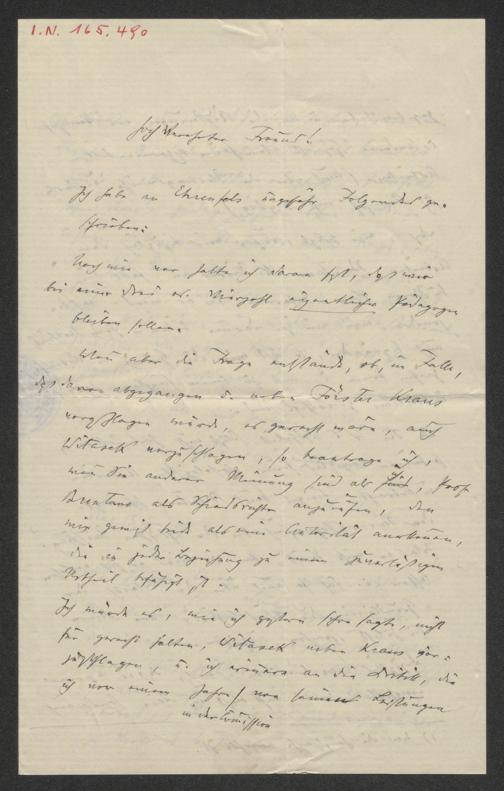 I.N. 165.490
Hochverehrter Freund!
Ich habe an Ehrenfels ungefähr Folgendes ge-
schrieben:
Nach wie vor halte ich daran fest, dass wir
bei einer Drei od. Vierzahl eigentlicher Pädagogen
bleiben sollen.
Wenn aber die Frage entstände, ob, im Falle,
dass davon abgegangen u. neben Förster Kraus
vorgeschlagen würde, es gerecht wäre, auch
Witasek vorzuschlagen, so beantrage ich,
wenn Sie anderer Meinung sind als ich, Prof.
Brentano als Schiedsrichter anzurufen, den
wir gewiß beide als eine Autorität anerkennen,
die in jeder Beziehung zu einem zuverlässigen
Urtheil befähigt ist.
Ich würde es, wie ich gestern schon sagte, nicht
für gerecht halten, Witasek neben Kraus vor-
zuschlagen, u. ich erinnere an die Kritik, die
ich vor einem Jahre von seinen Leistungen
in der Comission